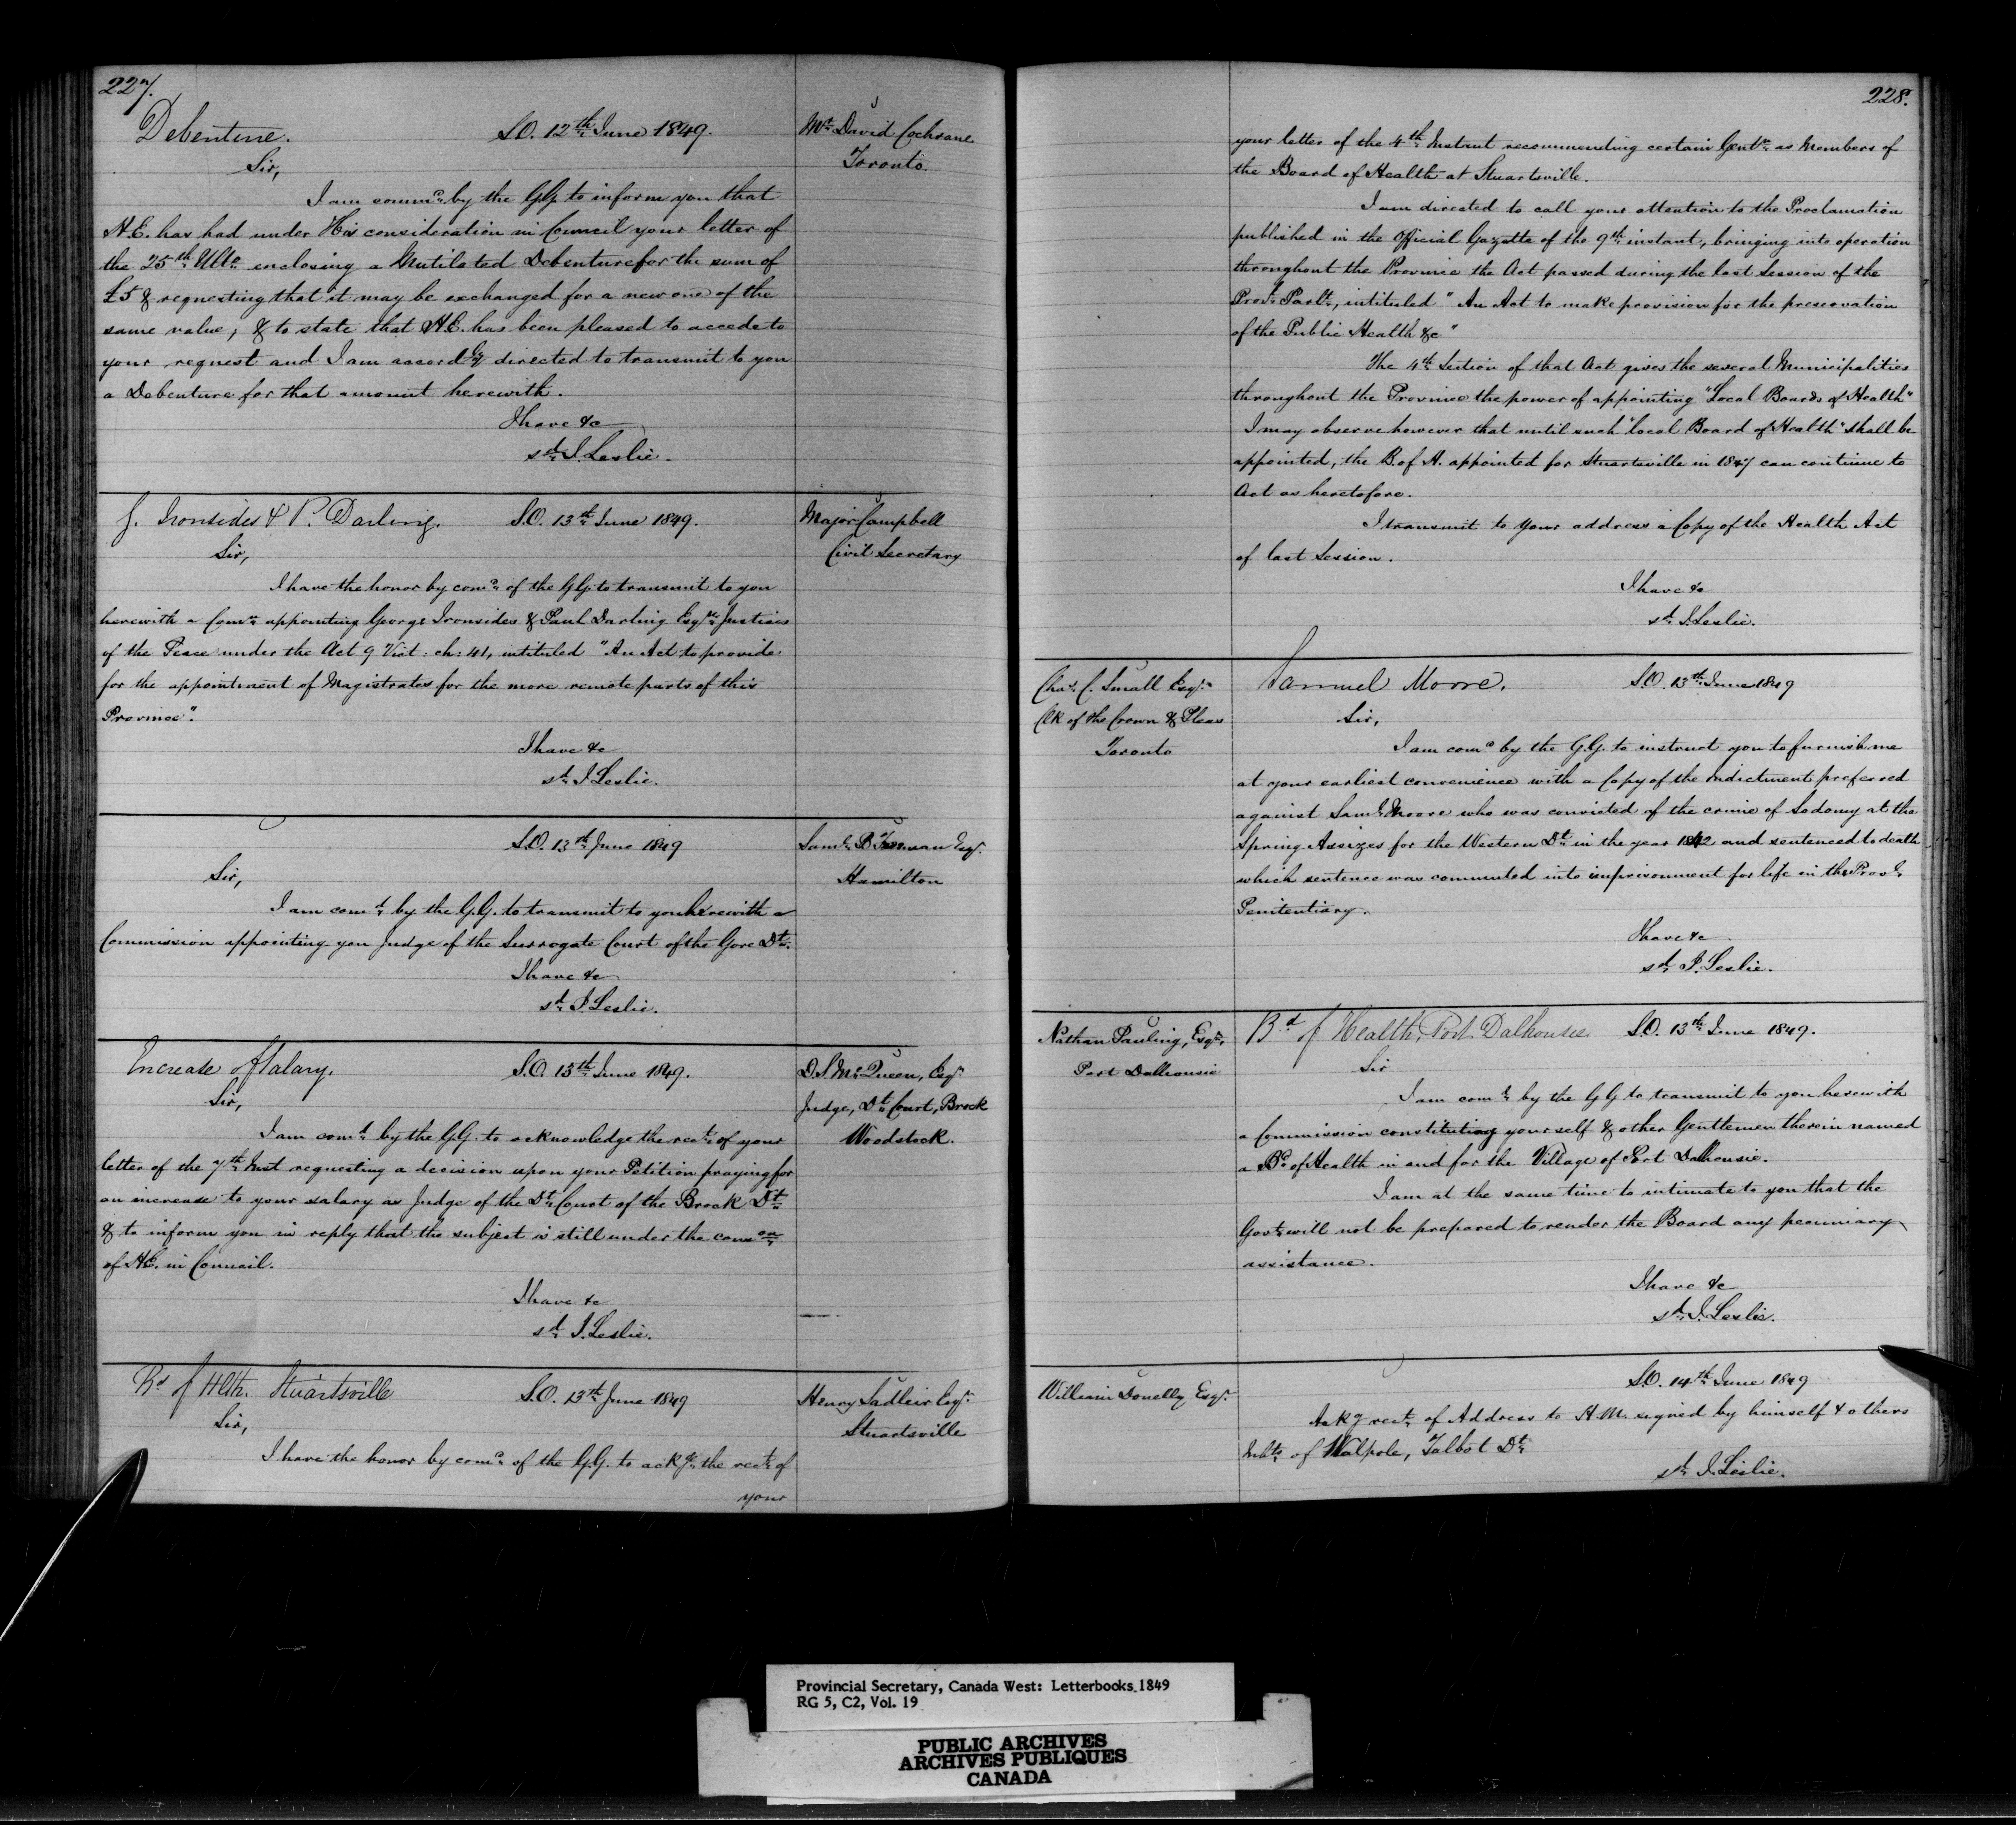 227.
Debenture. S.O. 12th June 1849. Mr David Cochrane
Toronto.
Sir,
I am commd by the GG. to inform you that
H.E. has had under His consideration in Council your letter of
the 25th Ulto enclosing a Mutilated Debenture for the sum of
£5 & requesting that it may be exchanged for a new one of the
same value, & to state that H.E. has been pleased to accede to
your request and I am accordgly directed to transmit to you
a Debenture for that amount herewith.
I have &c
sd. J. Leslie.
G. Ironsides & P. Darling. S.O. 13th June 1849. Major Campbell
Civil Secretary
Sir,
I have the honor by comd of the GG. to transmit to you
herewith a Comn appointing George Ironsides & Paul Darling Esqrs Justices
of the Peace under the Act 9 Vict: ch: 41, intituled "An Act to provide
for the appointment of Magistrates for the more remote parts of this
Province".
I have &c
sd. J. Leslie.
S.O. 13th June 1849 Saml B Freeman Esqr.
Hamilton
Sir,
I am comd. by the G.G. to transmit to you herewith a
Commission appointing you Judge of the Surrogate Court of the Gore Dt.
I have &c
sd. J. Leslie.
Increase of Salary. S.O. 13th June 1849. D.S. McQueen, Esqr
Judge, Dt. Court, Brock
Woodstock.
Sir,
I am comd. by the G.G. to acknowledge the rect. of your
letter of the 7th Inst requesting a decision upon your Petition praying for
an increase to your salary as Judge of the Dt. Court of the Brock Dt.
& to inform you in reply that the subject is still under the conson
of H.E. in Council.
I have &c
sd. J. Leslie.
Bd of Hlth. Stuartsville S.O. 13th June 1849 Henry Sadleir Esqr.
Stuartsville
Sir,
I have the honor by comd. of the G.G. to ackge. the rect. of
your
228.
your letter of the 4th Instant recommending certain Gentn as Members of
the Board of Health at Stuartsville.
I am directed to call your attention to the Proclamation
published in the Official Gazette of the 9th instant, bringing into operation
throughout the Province the Act passed during the last Session of the
Provl. Parlt., intituled "An Act to make provision for the preservation
of the Public Health &c"
The 4th Section of that Act gives the several Municipalities
throughout the Province the power of appointing "Local Boards of Health"
I may observe however that until such "local Board of Health" shall be
appointed, the B. of H. appointed for Stuartsville in 1847 can continue to
Act as heretofore.
I transmit to your address a Copy of the Health Act
of last Session.
I have &c
sd. J. Leslie.
Chas. C. Small Esqr. Samuel Moore. S.O. 13th June 1849
Clk of the Crown & Pleas
Toronto
Sir,
I am comd by the G.G. to instruct you to furnish me
at your earliest convenience with a Copy of the indictment preferred
against Saml. Moore who was convicted of the crime of Sodomy at the
Spring Assizes for the Western Dt. in the year 1842 and sentenced to death
which sentence was commuted into imprisonment for life in the Provl.
Penitentiary.
I have &c
sd. J. Leslie.
Nathan Pauling, Esqr. Bd of Health, Port Dalhousie. S.O. 13th June 1849.
Port Dalhousie
Sir
I am comd. by the GG to transmit to you herewith
a Commission constituting yourself & other Gentlemen therein named
a Bd. of Health in and for the Village of Port Dalhousie.
I am at the same time to intimate to you that the
Govt. will not be prepared to render the Board any pecuniary
assistance.
I have &c
sd. J. Leslie.
William Donelly Esqr. S.O. 14th June 1849
Ackg rect. of Address to H.M. signed by himself & others
Inhts. of Walpole, Talbot Dt.
sd. J. Leslie.
Provincial Secretary, Canada West: Letterbooks 1849
RG 5, C2, Vol. 19
PUBLIC ARCHIVES
ARCHIVES PUBLIQUES
CANADA